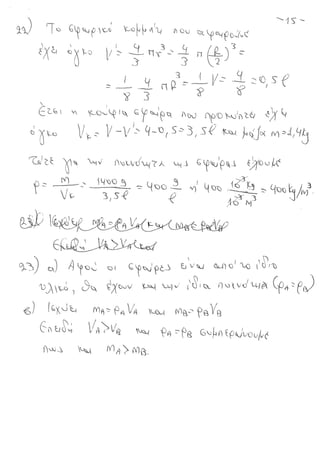 -15-
22) Το σφαιρικό κομμάτι που αφαιρούμε
έχει όγκο V' = 4/3 πr³ = 4/3 π(R/2)³ =
= 1/8 4/3 πR³ = 1/8 V = 4/8 = 0,5 l
Έτσι η κούφια σφαίρα που προκύπτει έχει
όγκο V_K = V - V' = 4 - 0,5 = 3,5 l και μάζα m = 1,4 kg
Τότε για την πυκνότητα της σφαίρας έχουμε
ρ = m/V_K = 1400 g/3,5 l = 400 g/l ή 400 10⁻³ kg/10⁻³ m³ = 400 kg/m³
Επειδή V_A > V_B και
23) α) Αφού οι σφαίρες είναι από το ίδιο
υλικό, θα έχουν και την ίδια πυκνότητα (ρ_A = ρ_B)
β) Ισχύει m_A = ρ_A V_A και m_B = ρ_B V_B
Επειδή V_A > V_B και ρ_A = ρ_B συμπεραίνουμε
πως και m_A > m_B.